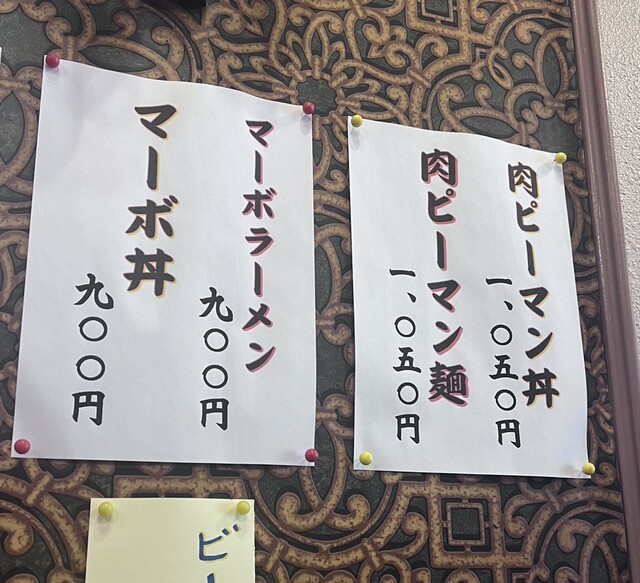 肉ピーマン丼
一、〇五〇円
肉ピーマン麺
一、〇五〇円
マーボラーメン
九〇〇円
マーボ丼
九〇〇円
ビー